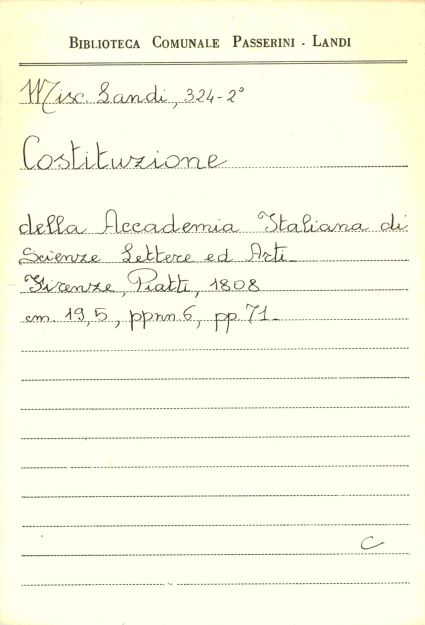 BIBLIOTECA COMUNALE PASSERINI - LANDI
Misc. Landi, 324-2°
Costituzione
della Accademia Italiana di
Scienze Lettere ed Arti_
Firenze, Piatti, 1808
cm. 19,5, ppnn 6, pp. 71_
C